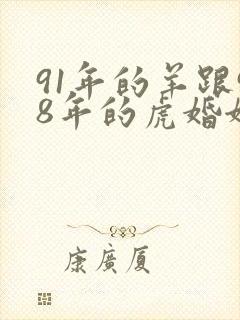 91年的羊跟
8年的虎婚
康廣厦